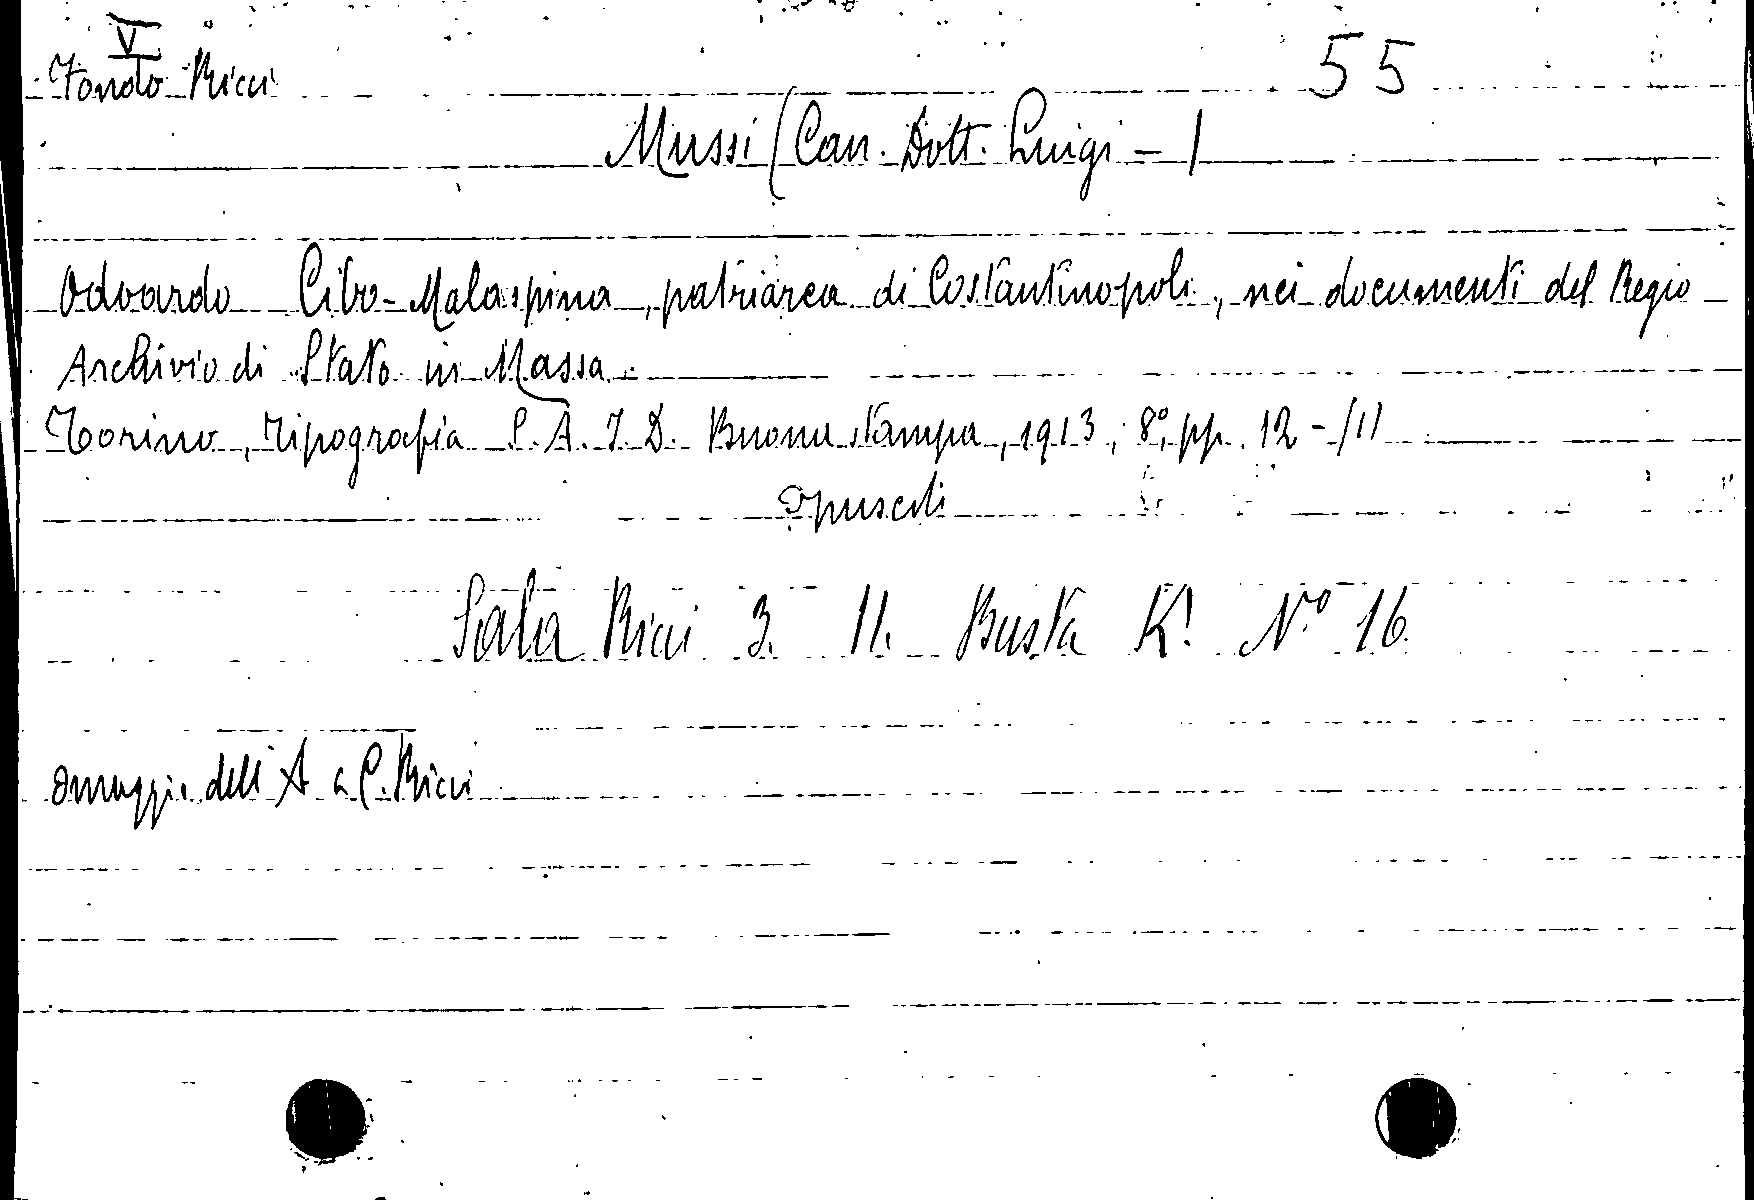 V
Fondo Ricci
55
Mussi (Can. Dott. Luigi - )
Odoardo Cibo-Malaspina, patriarca di Costantinopoli, nei documenti del Regio
Archivio di Stato in Massa.
Torino, Tipografia S. A. I. D. Buona stampa, 1913, 8°, pp. 12 -/11
Opuscoli
Sala Ricci 3. 11. Busta K! N.° 16
Omaggio dell'A a C. Ricci